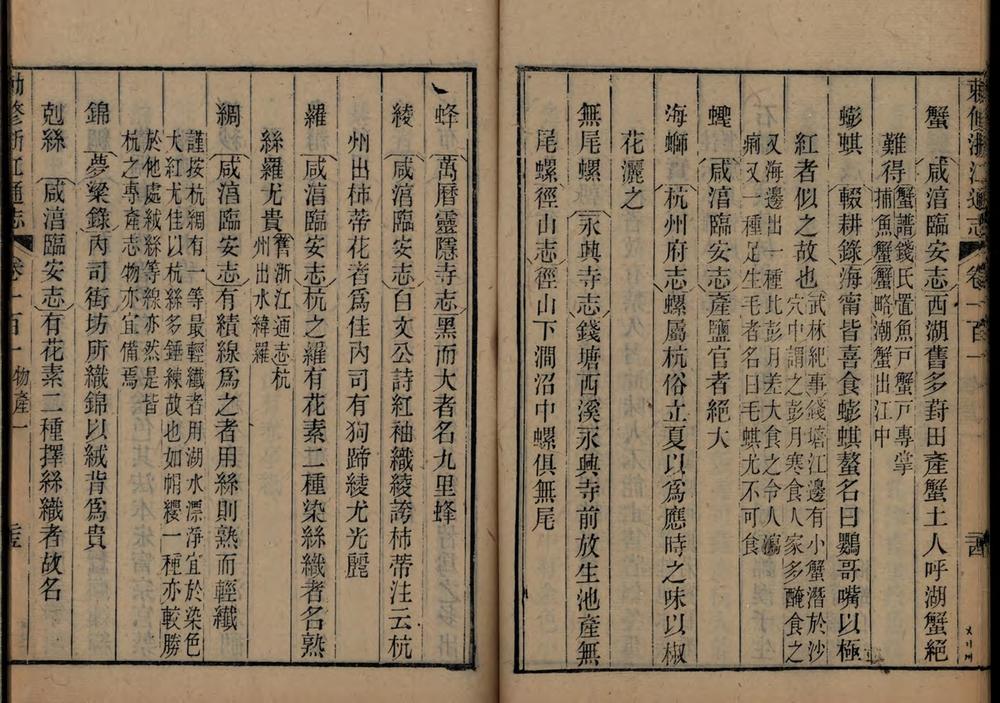 敕修浙江通志 卷一百一
蟹 咸淳臨安志西湖舊多葑田產蟹土人呼湖蟹絕
難得 蟹譜錢氏置魚戸蟹戸專掌
捕魚蟹蟹略潮蟹出江中
蟛蜞 輟耕錄海甯皆喜食蟛蜞螯名曰鸚哥嘴以極
紅者似之故也 武林紀事錢塘江邊有小蟹潛於沙
穴中謂之彭月寒食人家多醃食之
又海邊出一種比彭月差大食之令人瀉
痢又一種足生毛者名曰毛蜞尤不可食
蟶 咸淳臨安志產鹽官者絕大
海螄 杭州府志螺屬杭俗立夏以爲應時之味以椒
花灑之
無尾螺 永興寺志錢塘西溪永興寺前放生池產無
尾螺徑山志徑山下澗沼中螺俱無尾
蜂 萬曆靈隱寺志黑而大者名九里蜂
綾 咸淳臨安志白文公詩紅袖織綾誇柿蒂注云杭
州出柿蒂花者爲佳內司有狗蹄綾尤光麗
羅 咸淳臨安志杭之羅有花素二種染絲織者名熟
絲羅尤貴 舊浙江通志杭
州出水緯羅
綢 咸淳臨安志有績線爲之者用絲則熟而輕纖
謹按杭綢有一等最輕纖者用湖水漂淨宜於染色
大紅尤佳以杭絲多錘練故也如帽纓一種亦較勝
於他處絨絲等線亦然是皆
杭之專產志物亦宜備焉
錦 夢粱錄內司街坊所織錦以絨背爲貴
剋絲 咸淳臨安志有花素二種擇絲織者故名
敕修浙江通志 卷一百一 物產一